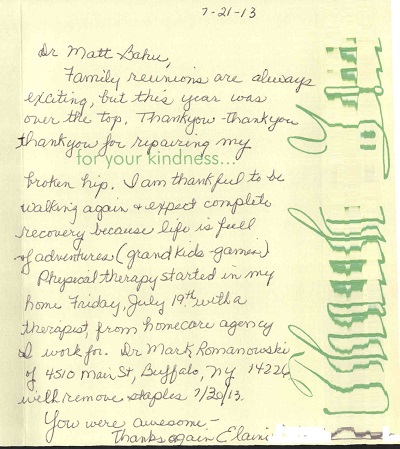 7-21-13
Dr Matt Bahu,
Family reunions are always
exciting, but this year was
over the top. Thankyou-thankyou
thankyou for repairing my
for your kindness...
broken hip. I am thankful to be
walking again & expect complete
recovery because life is full
of adventures (grandkids-games)
Physical therapy started in my
home Friday, July 19th with a
therapist, from homecare agency
I work for. Dr Mark Romanowski
of 4510 Main St, Buffalo, NY 14226
will remove staples 7/30/13.
You were awesome-
Thanks again Elaine
Thank
You